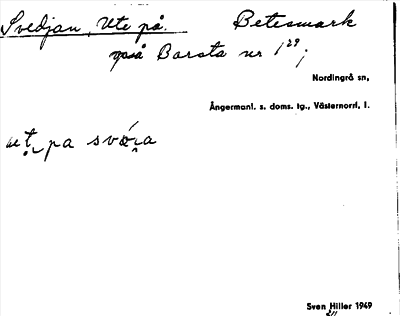 Svedjan, Ute på. Betesmark
på Barsta nr 1²⁹;
Nordingrå sn,
Ångermanl. s. doms. tg., Västernorrl. l.
pa
Sven Hiller 1949